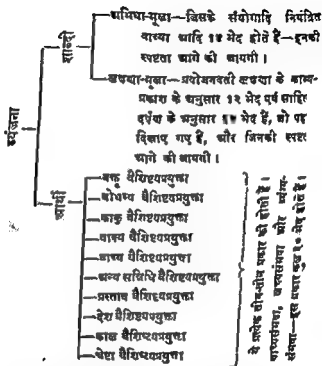 व्यंजना
शाब्दी
अभिधा-मूला—जिसके संयोगादि नियंत्रित
वाच्या आदि १४ भेद होते हैं—इनकी
स्पष्टता आगे की जायगी ।
लक्षणा-मूला—प्रयोजनवती लक्षणा के काव्य-
प्रकाश के अनुसार १२ भेद एवं साहित्य
दर्पण के अनुसार भेद हैं, जो
दिखाए गए हैं, और जिनकी स्पष्ट
आगे की जायगी ।
आर्थी
वक्तृ वैशिष्ट्यप्रयुक्ता
बोधव्य वैशिष्ट्यप्रयुक्ता
काकु वैशिष्ट्यप्रयुक्ता
वाक्य वैशिष्ट्यप्रयुक्ता
वाच्य वैशिष्ट्यप्रयुक्ता
अन्य सन्निधि वैशिष्ट्यप्रयुक्ता
प्रस्ताव वैशिष्ट्यप्रयुक्ता
देश वैशिष्ट्यप्रयुक्ता
काल वैशिष्ट्यप्रयुक्ता
चेष्टा वैशिष्ट्यप्रयुक्ता
ये प्रत्येक तीन-तीन प्रकार की होती हैं ।
वाच्यसंभवा, लक्ष्यसंभवा और व्यंग्य-
संभवा—इस प्रकार कुल ३० भेद होते हैं ।